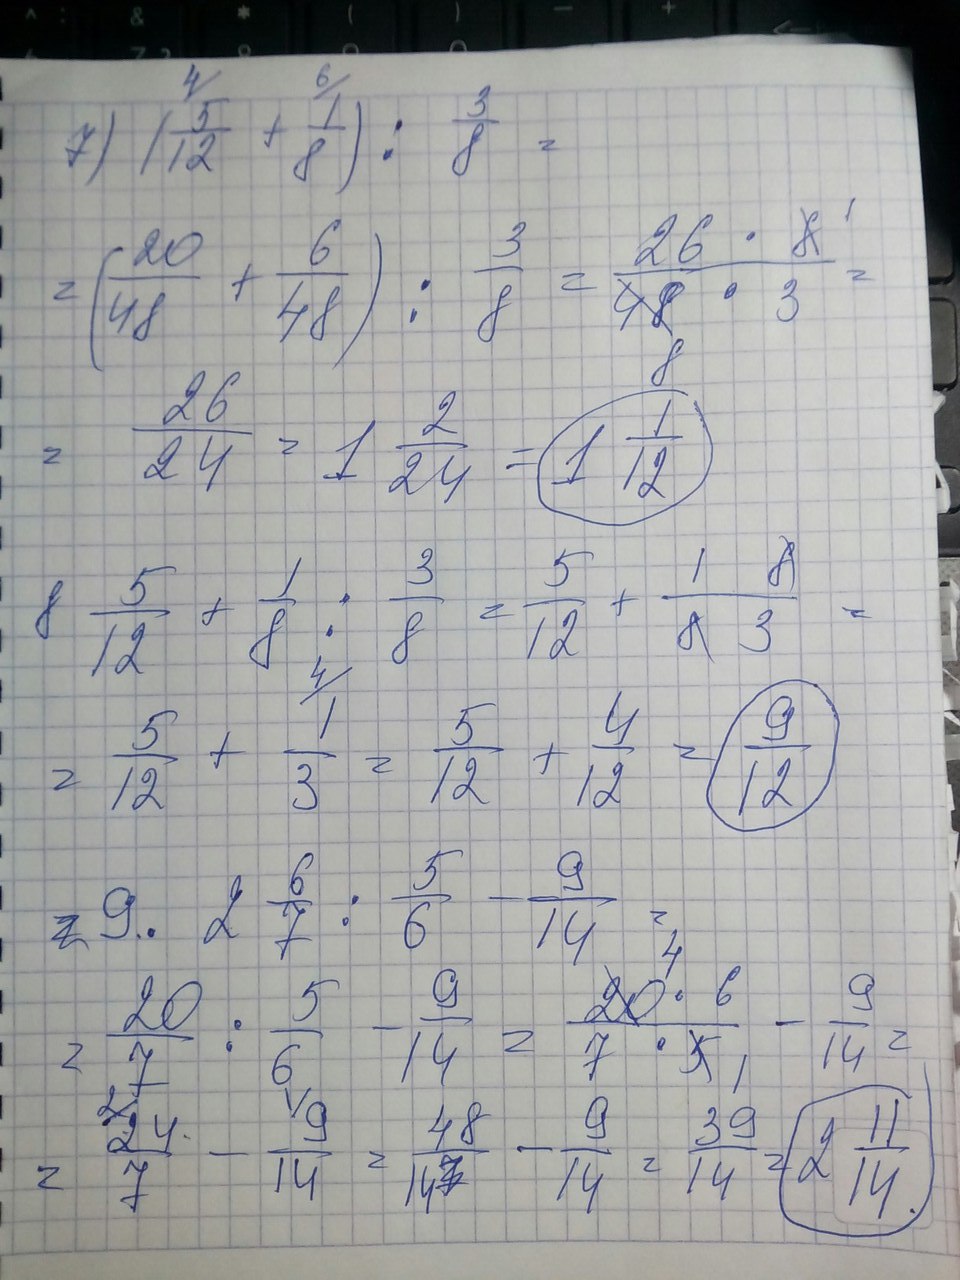 4/ 6/
7) (5/12 + 1/8) : 3/8 =
= (20/48 + 6/48) : 3/8 = 26 · 8 1 / 48 · 3 =
8
= 26/24 = 1 2/24 = 1 1/12
8 5/12 + 1/8 : 3/8 = 5/12 + 1 8 / 8 3 =
4/
= 5/12 + 1/3 = 5/12 + 4/12 = 9/12
= 9. 2 6/7 : 5/6 - 9/14 =
4
= 20/7 : 5/6 - 9/14 = 20 · 6 / 7 · 5 1 - 9/14 =
2/ 1/
= 24/7 - 9/14 = 48/14 - 9/14 = 39/14 = 2 11/14.